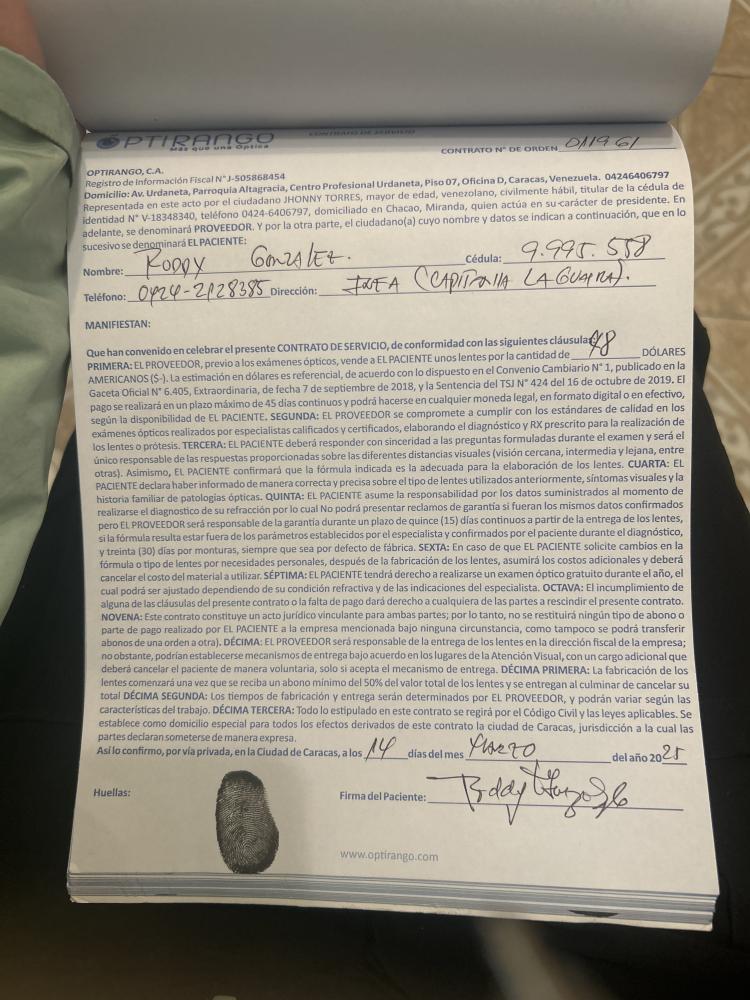 OPTIRANGO
Más que una Óptica
CONTRATO DE SERVICIO
CONTRATO N° DE ORDEN 011961
OPTIRANGO, C.A.
Registro de Información Fiscal N° J-505868454
Domicilio: Av. Urdaneta, Parroquia Altagracia, Centro Profesional Urdaneta, Piso 07, Oficina D, Caracas, Venezuela. 04246406797
Representada en este acto por el ciudadano JHONNY TORRES, mayor de edad, venezolano, civilmente hábil, titular de la cédula de
identidad N° V-18348340, teléfono 0424-6406797, domiciliado en Chacao, Miranda, quien actúa en su carácter de presidente. En
adelante, se denominará PROVEEDOR. Y por la otra parte, el ciudadano(a) cuyo nombre y datos se indican a continuación, que en lo
sucesivo se denominará EL PACIENTE:
Nombre: RODDY GONZALEZ. Cédula: 9.995.558
Teléfono: 0424-2128385 Dirección: (CAPITANIA LA GUAIRA).
MANIFIESTAN:
Que han convenido en celebrar el presente CONTRATO DE SERVICIO, de conformidad con las siguientes cláusulas
PRIMERA: EL PROVEEDOR, previo a los exámenes ópticos, vende a EL PACIENTE unos lentes por la cantidad de 48 DÓLARES
AMERICANOS (S-). La estimación en dólares es referencial, de acuerdo con lo dispuesto en el Convenio Cambiario N° 1, publicado en la
Gaceta Oficial N° 6.405, Extraordinaria, de fecha 7 de septiembre de 2018, y la Sentencia del TSJ N° 424 del 16 de octubre de 2019. El
pago se realizará en un plazo máximo de 45 días continuos y podrá hacerse en cualquier moneda legal, en formato digital o en efectivo,
según la disponibilidad de EL PACIENTE. SEGUNDA: EL PROVEEDOR se compromete a cumplir con los estándares de calidad en los
exámenes ópticos realizados por especialistas calificados y certificados, elaborando el diagnóstico y RX prescrito para la realización de
los lentes o prótesis. TERCERA: EL PACIENTE deberá responder con sinceridad a las preguntas formuladas durante el examen y será el
único responsable de las respuestas proporcionadas sobre las diferentes distancias visuales (visión cercana, intermedia y lejana, entre
otras). Asimismo, EL PACIENTE confirmará que la fórmula indicada es la adecuada para la elaboración de los lentes. CUARTA: EL
PACIENTE declara haber informado de manera correcta y precisa sobre el tipo de lentes utilizados anteriormente, síntomas visuales y la
historia familiar de patologías ópticas. QUINTA: EL PACIENTE asume la responsabilidad por los datos suministrados al momento de
realizarse el diagnostico de su refracción por lo cual No podrá presentar reclamos de garantía si fueran los mismos datos confirmados
pero EL PROVEEDOR será responsable de la garantía durante un plazo de quince (15) días continuos a partir de la entrega de los lentes,
si la fórmula resulta estar fuera de los parámetros establecidos por el especialista y confirmados por el paciente durante el diagnóstico,
y treinta (30) días por monturas, siempre que sea por defecto de fábrica. SEXTA: En caso de que EL PACIENTE solicite cambios en la
fórmula o tipo de lentes por necesidades personales, después de la fabricación de los lentes, asumirá los costos adicionales y deberá
cancelar el costo del material a utilizar. SÉPTIMA: EL PACIENTE tendrá derecho a realizarse un examen óptico gratuito durante el año, el
cual podrá ser ajustado dependiendo de su condición refractiva y de las indicaciones del especialista. OCTAVA: El incumplimiento de
alguna de las cláusulas del presente contrato o la falta de pago dará derecho a cualquiera de las partes a rescindir el presente contrato.
NOVENA: Este contrato constituye un acto jurídico vinculante para ambas partes; por lo tanto, no se restituirá ningún tipo de abono o
parte de pago realizado por EL PACIENTE a la empresa mencionada bajo ninguna circunstancia, como tampoco se podrá transferir
abonos de una orden a otra). DÉCIMA: EL PROVEEDOR será responsable de la entrega de los lentes en la dirección fiscal de la empresa;
no obstante, podrían establecerse mecanismos de entrega bajo acuerdo en los lugares de la Atención Visual, con un cargo adicional que
deberá cancelar el paciente de manera voluntaria, solo si acepta el mecanismo de entrega. DÉCIMA PRIMERA: La fabricación de los
lentes comenzará una vez que se reciba un abono mínimo del 50% del valor total de los lentes y se entregan al culminar de cancelar su
total DÉCIMA SEGUNDA: Los tiempos de fabricación y entrega serán determinados por EL PROVEEDOR, y podrán variar según las
características del trabajo. DÉCIMA TERCERA: Todo lo estipulado en este contrato se regirá por el Código Civil y las leyes aplicables. Se
establece como domicilio especial para todos los efectos derivados de este contrato la ciudad de Caracas, jurisdicción a la cual las
partes declaran someterse de manera expresa.
Así lo confirmo, por vía privada, en la Ciudad de Caracas, a los 14 días del mes Marzo del año 2025
Huellas:
Firma del Paciente: Roddy Gonzalez
www.optirango.com